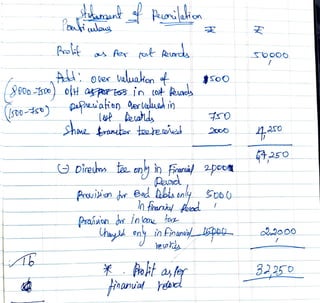 Statement of Reconciliation
Particulars ₹ ₹
Profit as Per cost Records 50,000
Add: over valuation of 1500
(8000-7500) O/H in cost Records
(1500-750) Depreciation over valued in
cost Records 750
Share transfer fee received 2000 4,250
(-) Directors fee only in Financial 2000
Record
provision for Bad Debts only 5000
In financial Record
provision for income tax
charged only in Financial 15,000 22,000
records
16 * Profit as per 32,250
financial record